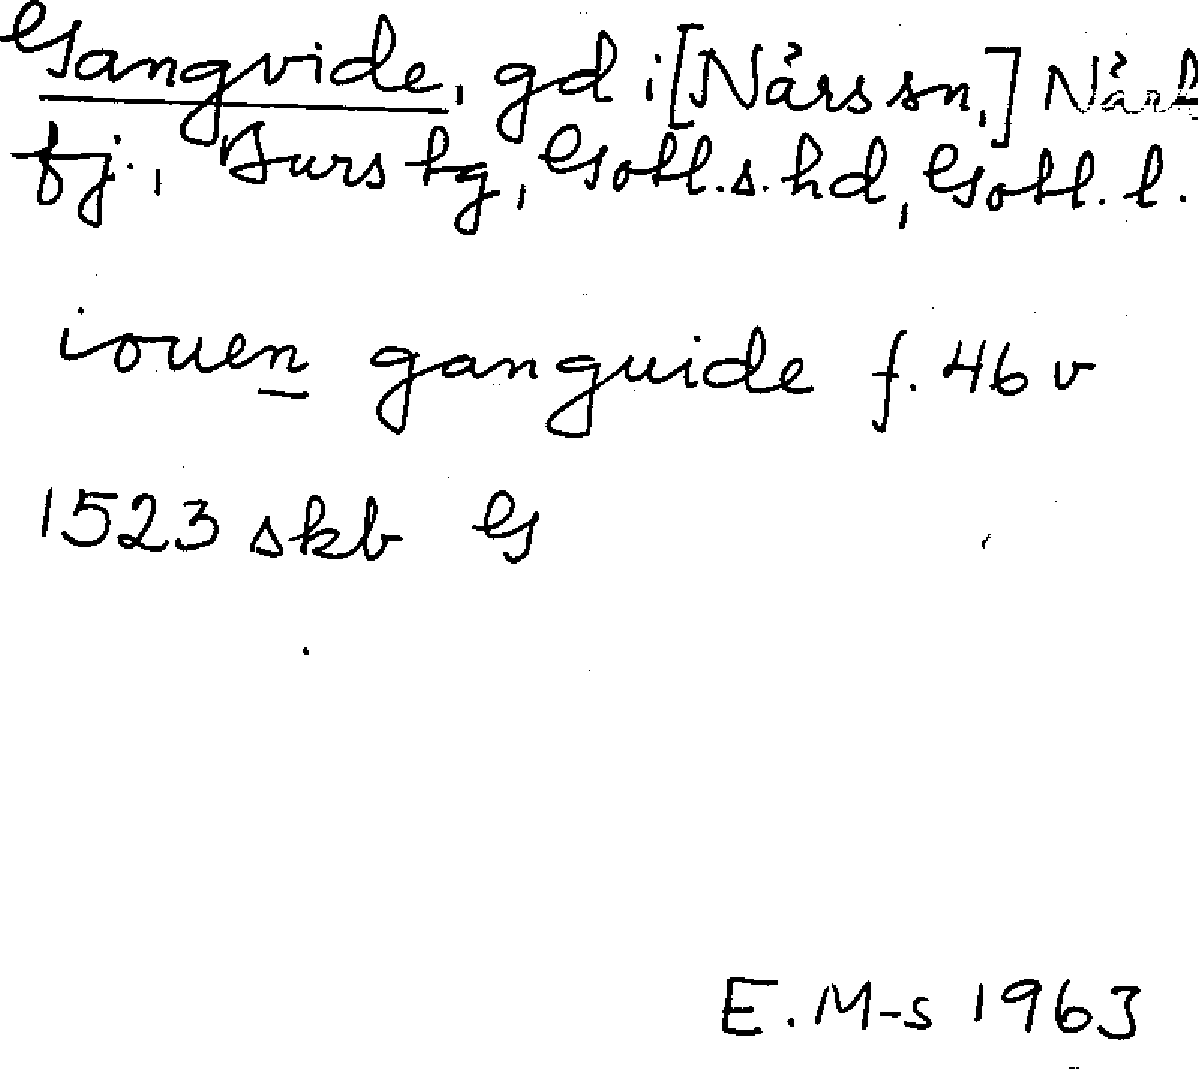 Gangvide, gd i [Närs sn,] När
fj., Burs tg, Gotl. s. hd, Gotl. l.
iouen ganguide f. 46 v
1523 skb G
E. M-s 1963